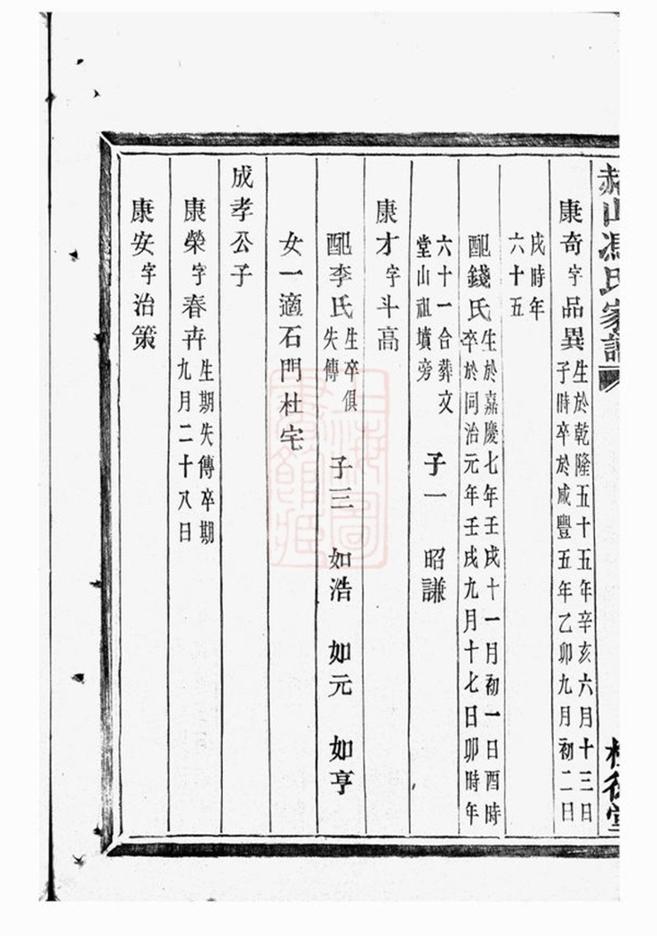 山馮氏家譜
堂
康奇字品異
生於乾隆五十五年辛亥六月十三日
子時卒於咸豐五年乙卯九月初二日
戌時年
六十五
配錢氏
生於嘉慶七年壬戌十一月初一日酉時
卒於同治元年壬戌九月十七日卯時年
六十一合葬文
堂山祖墳旁
子一 昭謙
康才字斗高
配李氏
生卒俱
失傳
子三 如浩 如元 如亨
女一適石門杜宅
成孝公子
康榮字春卉
生期失傳卒期
九月二十八日
康安字治策
上海圖
書館藏